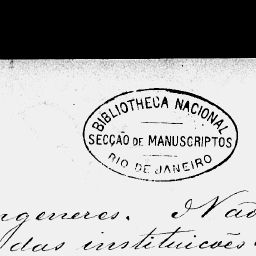 BIBLIOTHECA NACIONAL
SECÇÃO DE MANUSCRIPTOS
RIO DE JANEIRO
ngeneres. Não
das instituicões